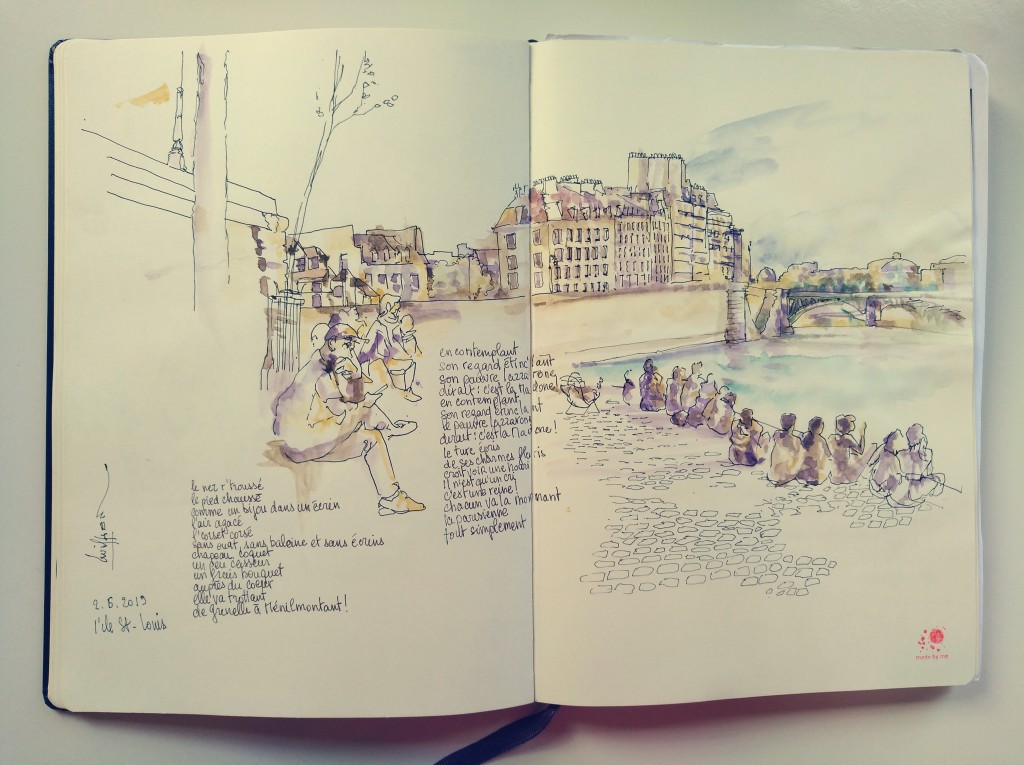 le nez r'troussé
le pied chaussé
comme un bijou dans un écrin
l'air agacé
l'corset corsé
sans ouat, sans baleine et sans écrins
chapeau coquet
un peu casseur
un frais bouquet
auprès du coeur
elle va trottant
de grenelle à Ménilmontant!
2.6.2019
l'ile St-Louis
en contemplant
son regard étinc'lant
son pauvre lazzarone
dirait: c'est la Madone!
en contemplant
son regard étincelant
le pauvre lazzarone
dirait: c'est la Madone!
le turc épris
de ses charmes
croit voir une
il n'est qu'un cri
c'est une reine!
chacun va la nommant
la parisienne
tout simplement
made by me